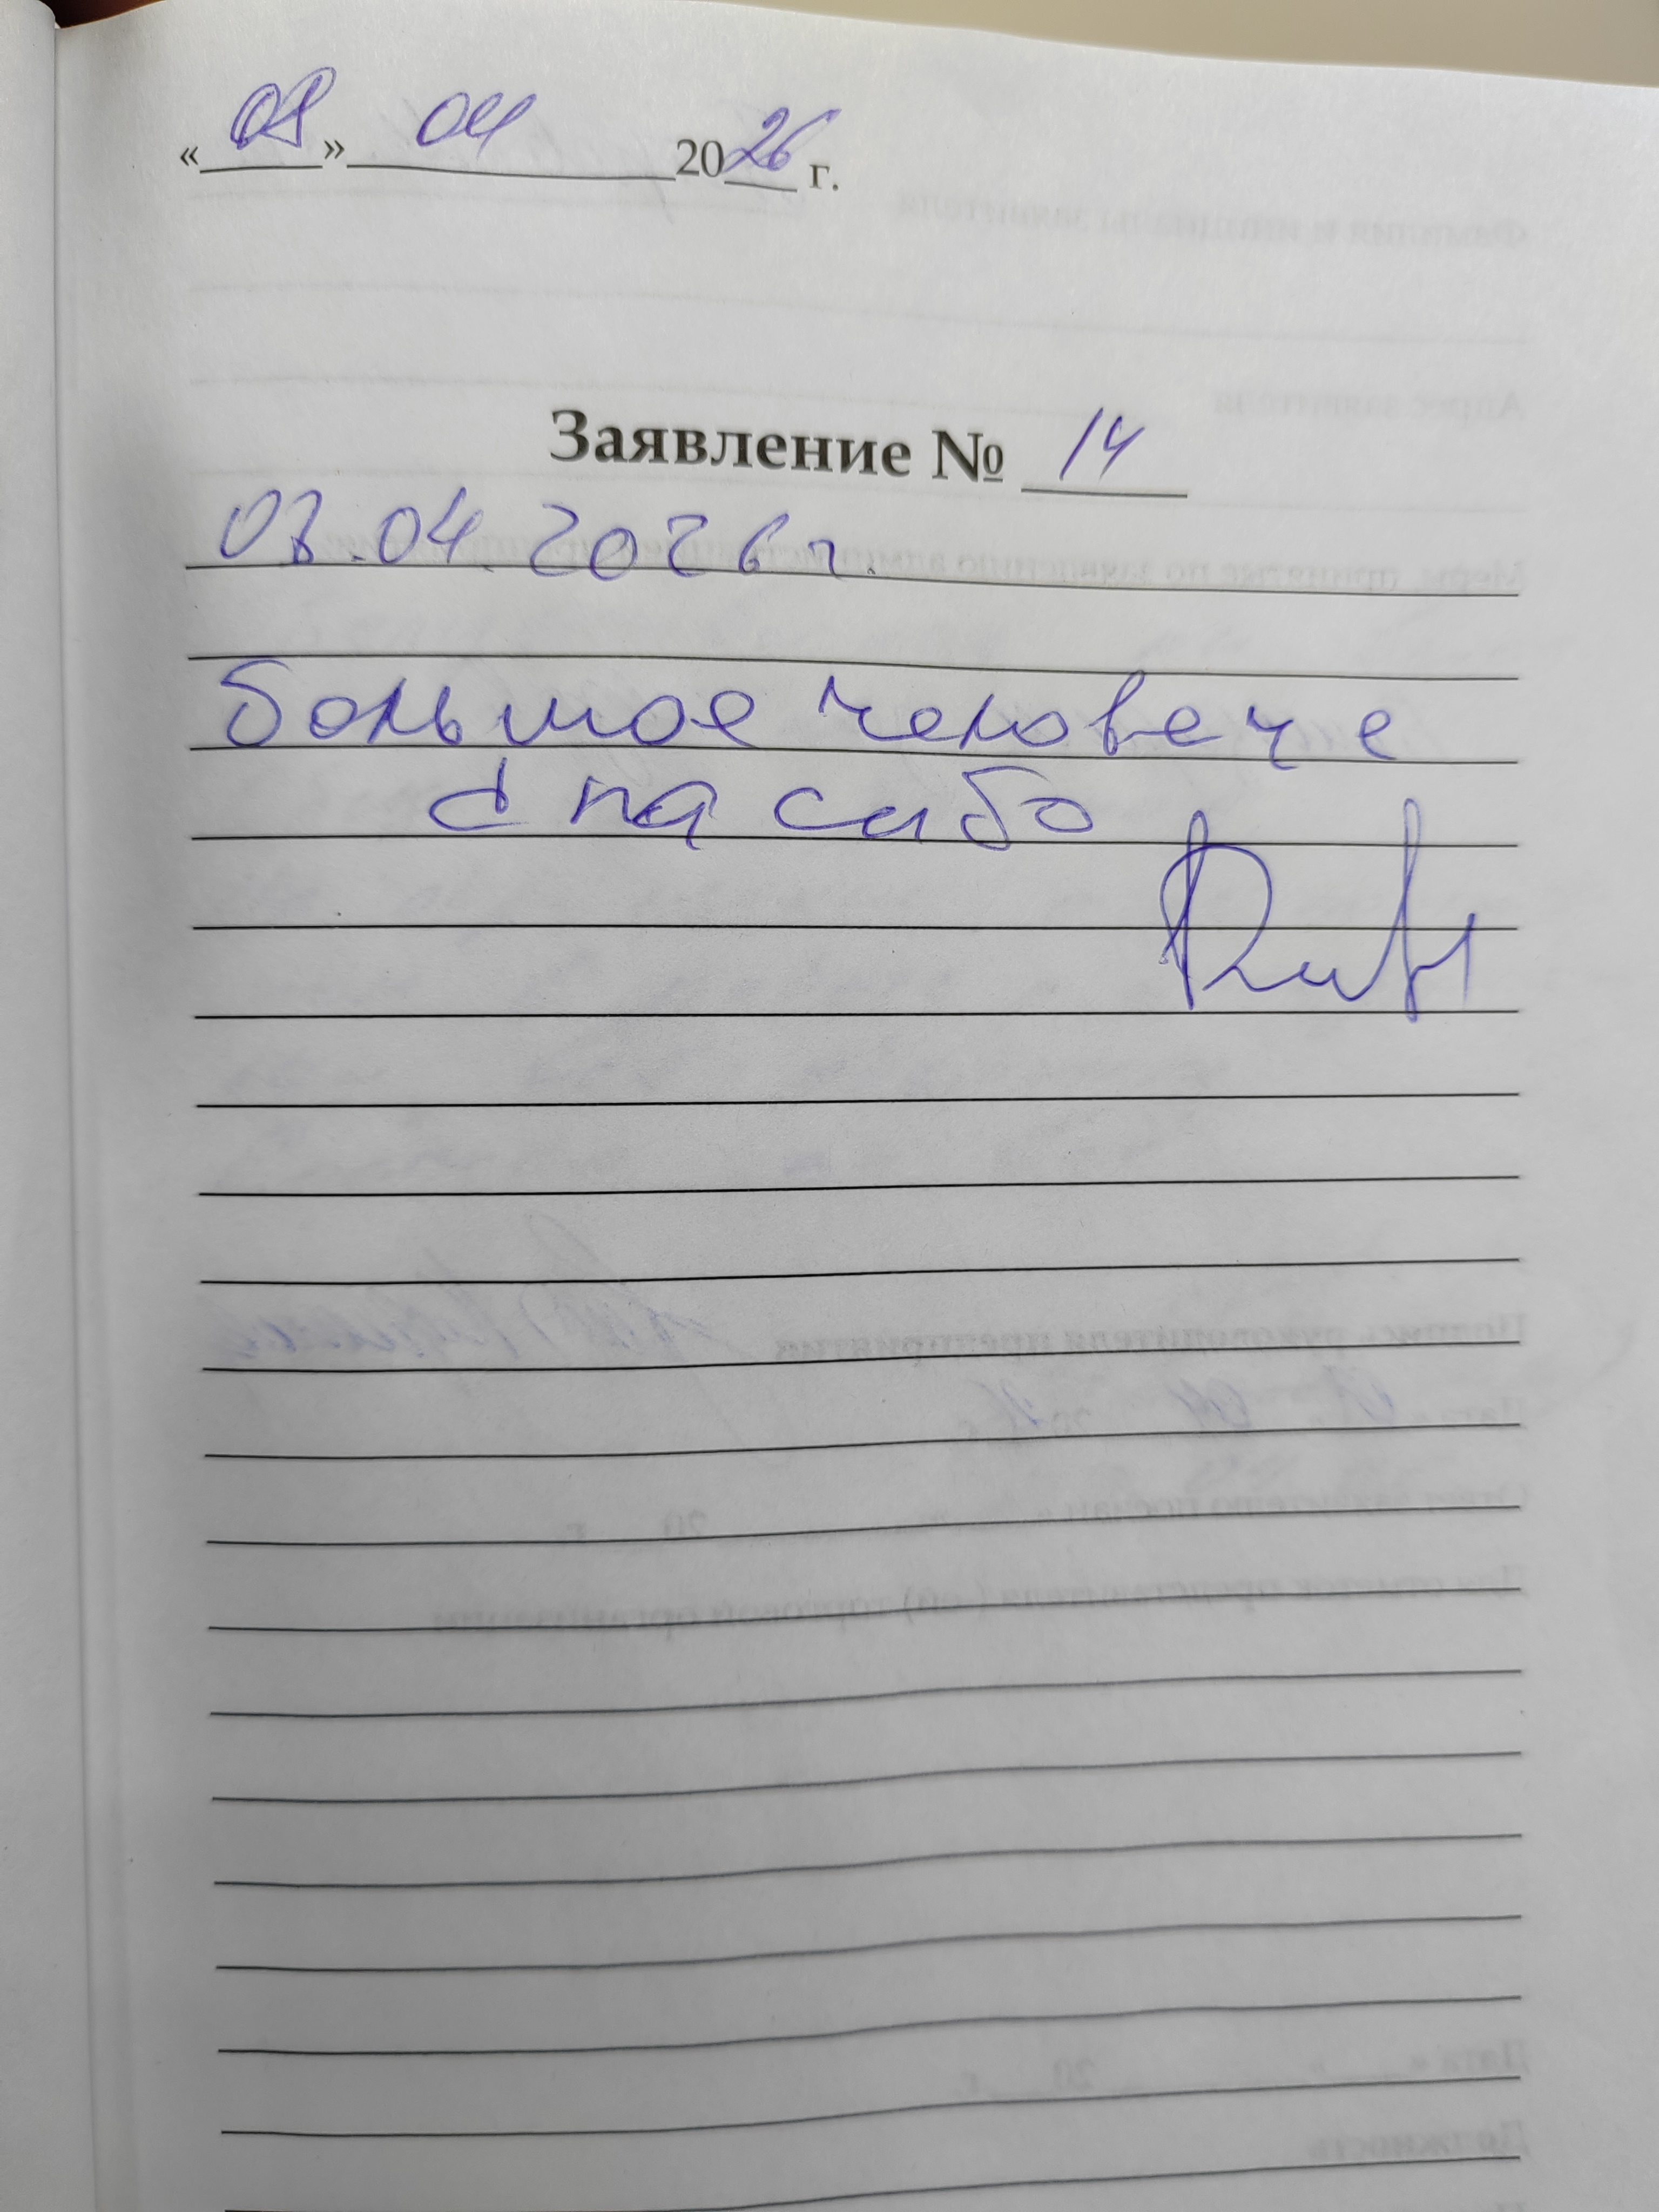 «08» 04 2026 г.
Заявление № 14
08.04.2026 г.
большое человече
спасибо